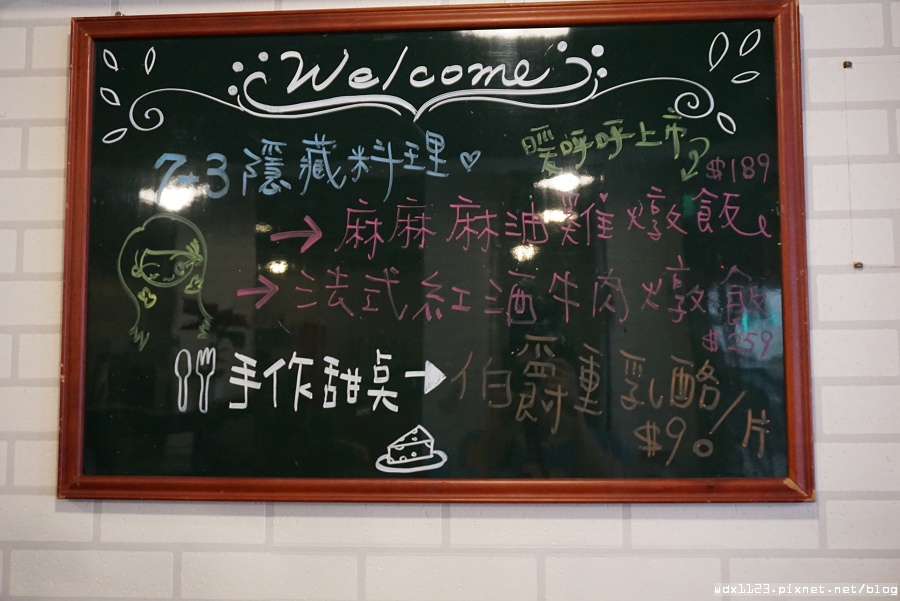 Welcome
暖呼呼上市
7+3隱藏料理
$189
→麻麻麻油雞燉飯
→法式紅酒牛肉燉飯
$259
手作甜桌→伯爵重乳酪/片
$90
wdx1123.pixnet.net/blog